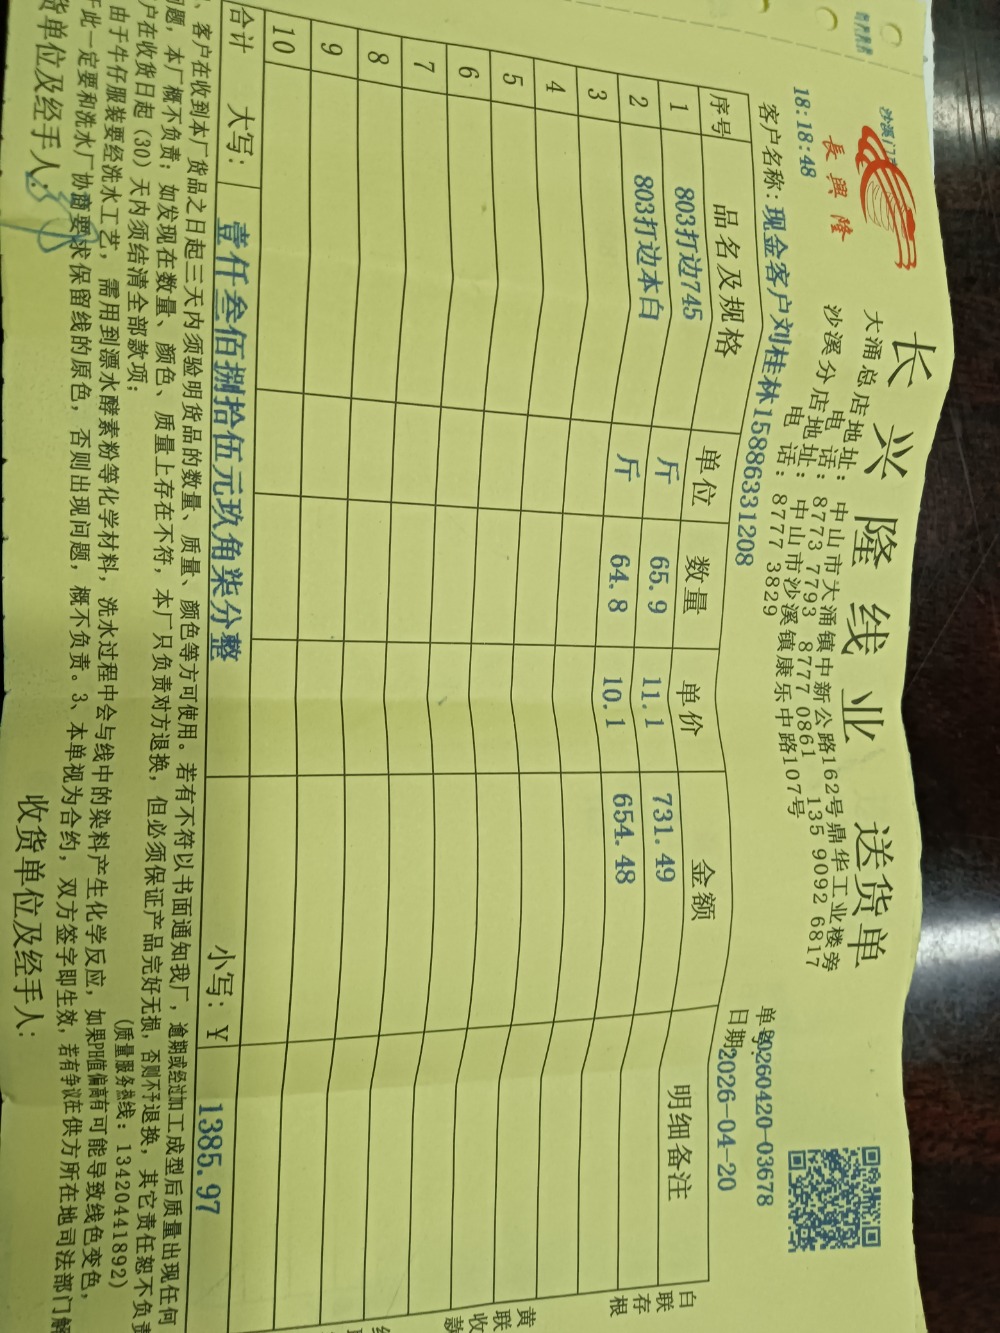 長興隆
长兴隆线业 送货单
大涌总店地址:中山市大涌镇中新公路162号鼎华工业楼旁
电话:8773 7793 8777 0861 135 9092 6817
沙溪分店地址:中山市沙溪镇康乐中路107号
电话:8777 3829
沙溪门
18:18:48
单号:20260420-03678
客户名称:现金客户刘桂林15886331208
日期2026-04-20
序号 品名及规格 单位 数量 单价 金额 明细备注
1 803打边745 斤 65.9 11.1 731.49
2 803打边本白 斤 64.8 10.1 654.48
3
4
5
6
7
8
9
10
合计 大写:壹仟叁佰捌拾伍元玖角柒分整 小写:¥ 1385.97
、客户在收到本厂货品之日起三天内须验明货品的数量、质量、颜色等方可使用。若有不符以书面通知我厂,逾期或经过加工成型后质量出现任何
问题,本厂概不负责;如发现在数量、颜色、质量上存在不符,本厂只负责对方退换,但必须保证产品完好无损,否则不予退换,其它责任恕不负责
户在收货日起(30)天内须结清全部款项; (质量服务热线:13420441892)
由于牛仔服装要经洗水工艺,需用到漂水酵素粉等化学材料,洗水过程中会与线中的染料产生化学反应,如果PH值偏高有可能导致线色变色,
于此一定要和洗水厂协商要求保留线的原色,否则出现问题,概不负责。3、本单视为合约,双方签字即生效,若有争议在供方所在地司法部门解
货单位及经手人: 收货单位及经手人:
白联存根
黄联收款